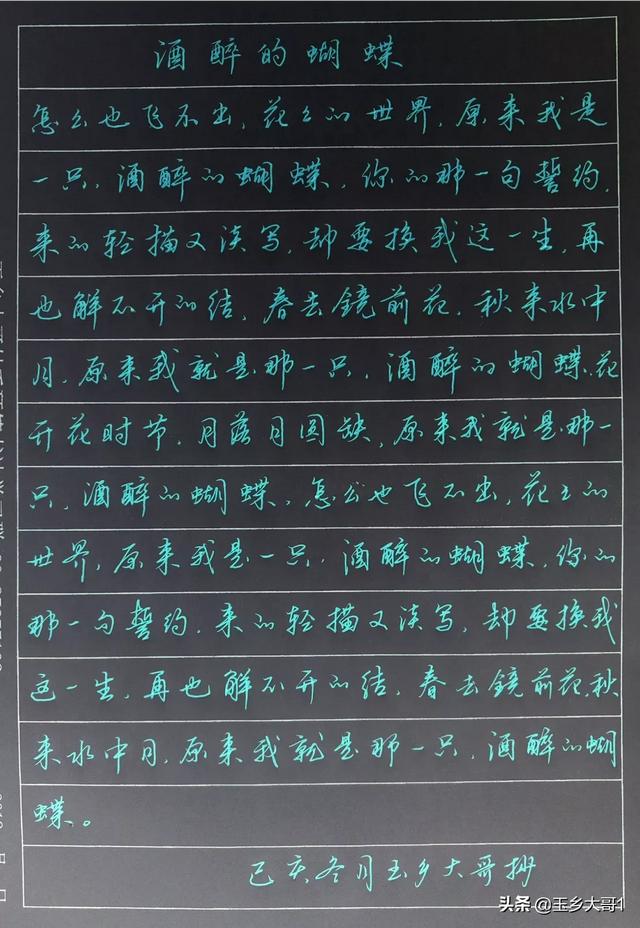 酒醉的蝴蝶
怎么也飞不出,花花的世界,原来我是
一只,酒醉的蝴蝶,你的那一句誓约,
来的轻描又淡写,却要换我这一生,再
也解不开的结,春去镜前花,秋来水中
月,原来我就是那一只,酒醉的蝴蝶,花
开花时节,月落月圆缺,原来我就是那一
只,酒醉的蝴蝶,怎么也飞不出,花花的
世界,原来我是一只,酒醉的蝴蝶,你的
那一句誓约,来的轻描又淡写,却要换我
这一生,再也解不开的结,春去镜前花,秋
来水中月,原来我就是那一只,酒醉的蝴
蝶。
己亥冬月玉乡大哥抄
头条 @玉乡大哥1